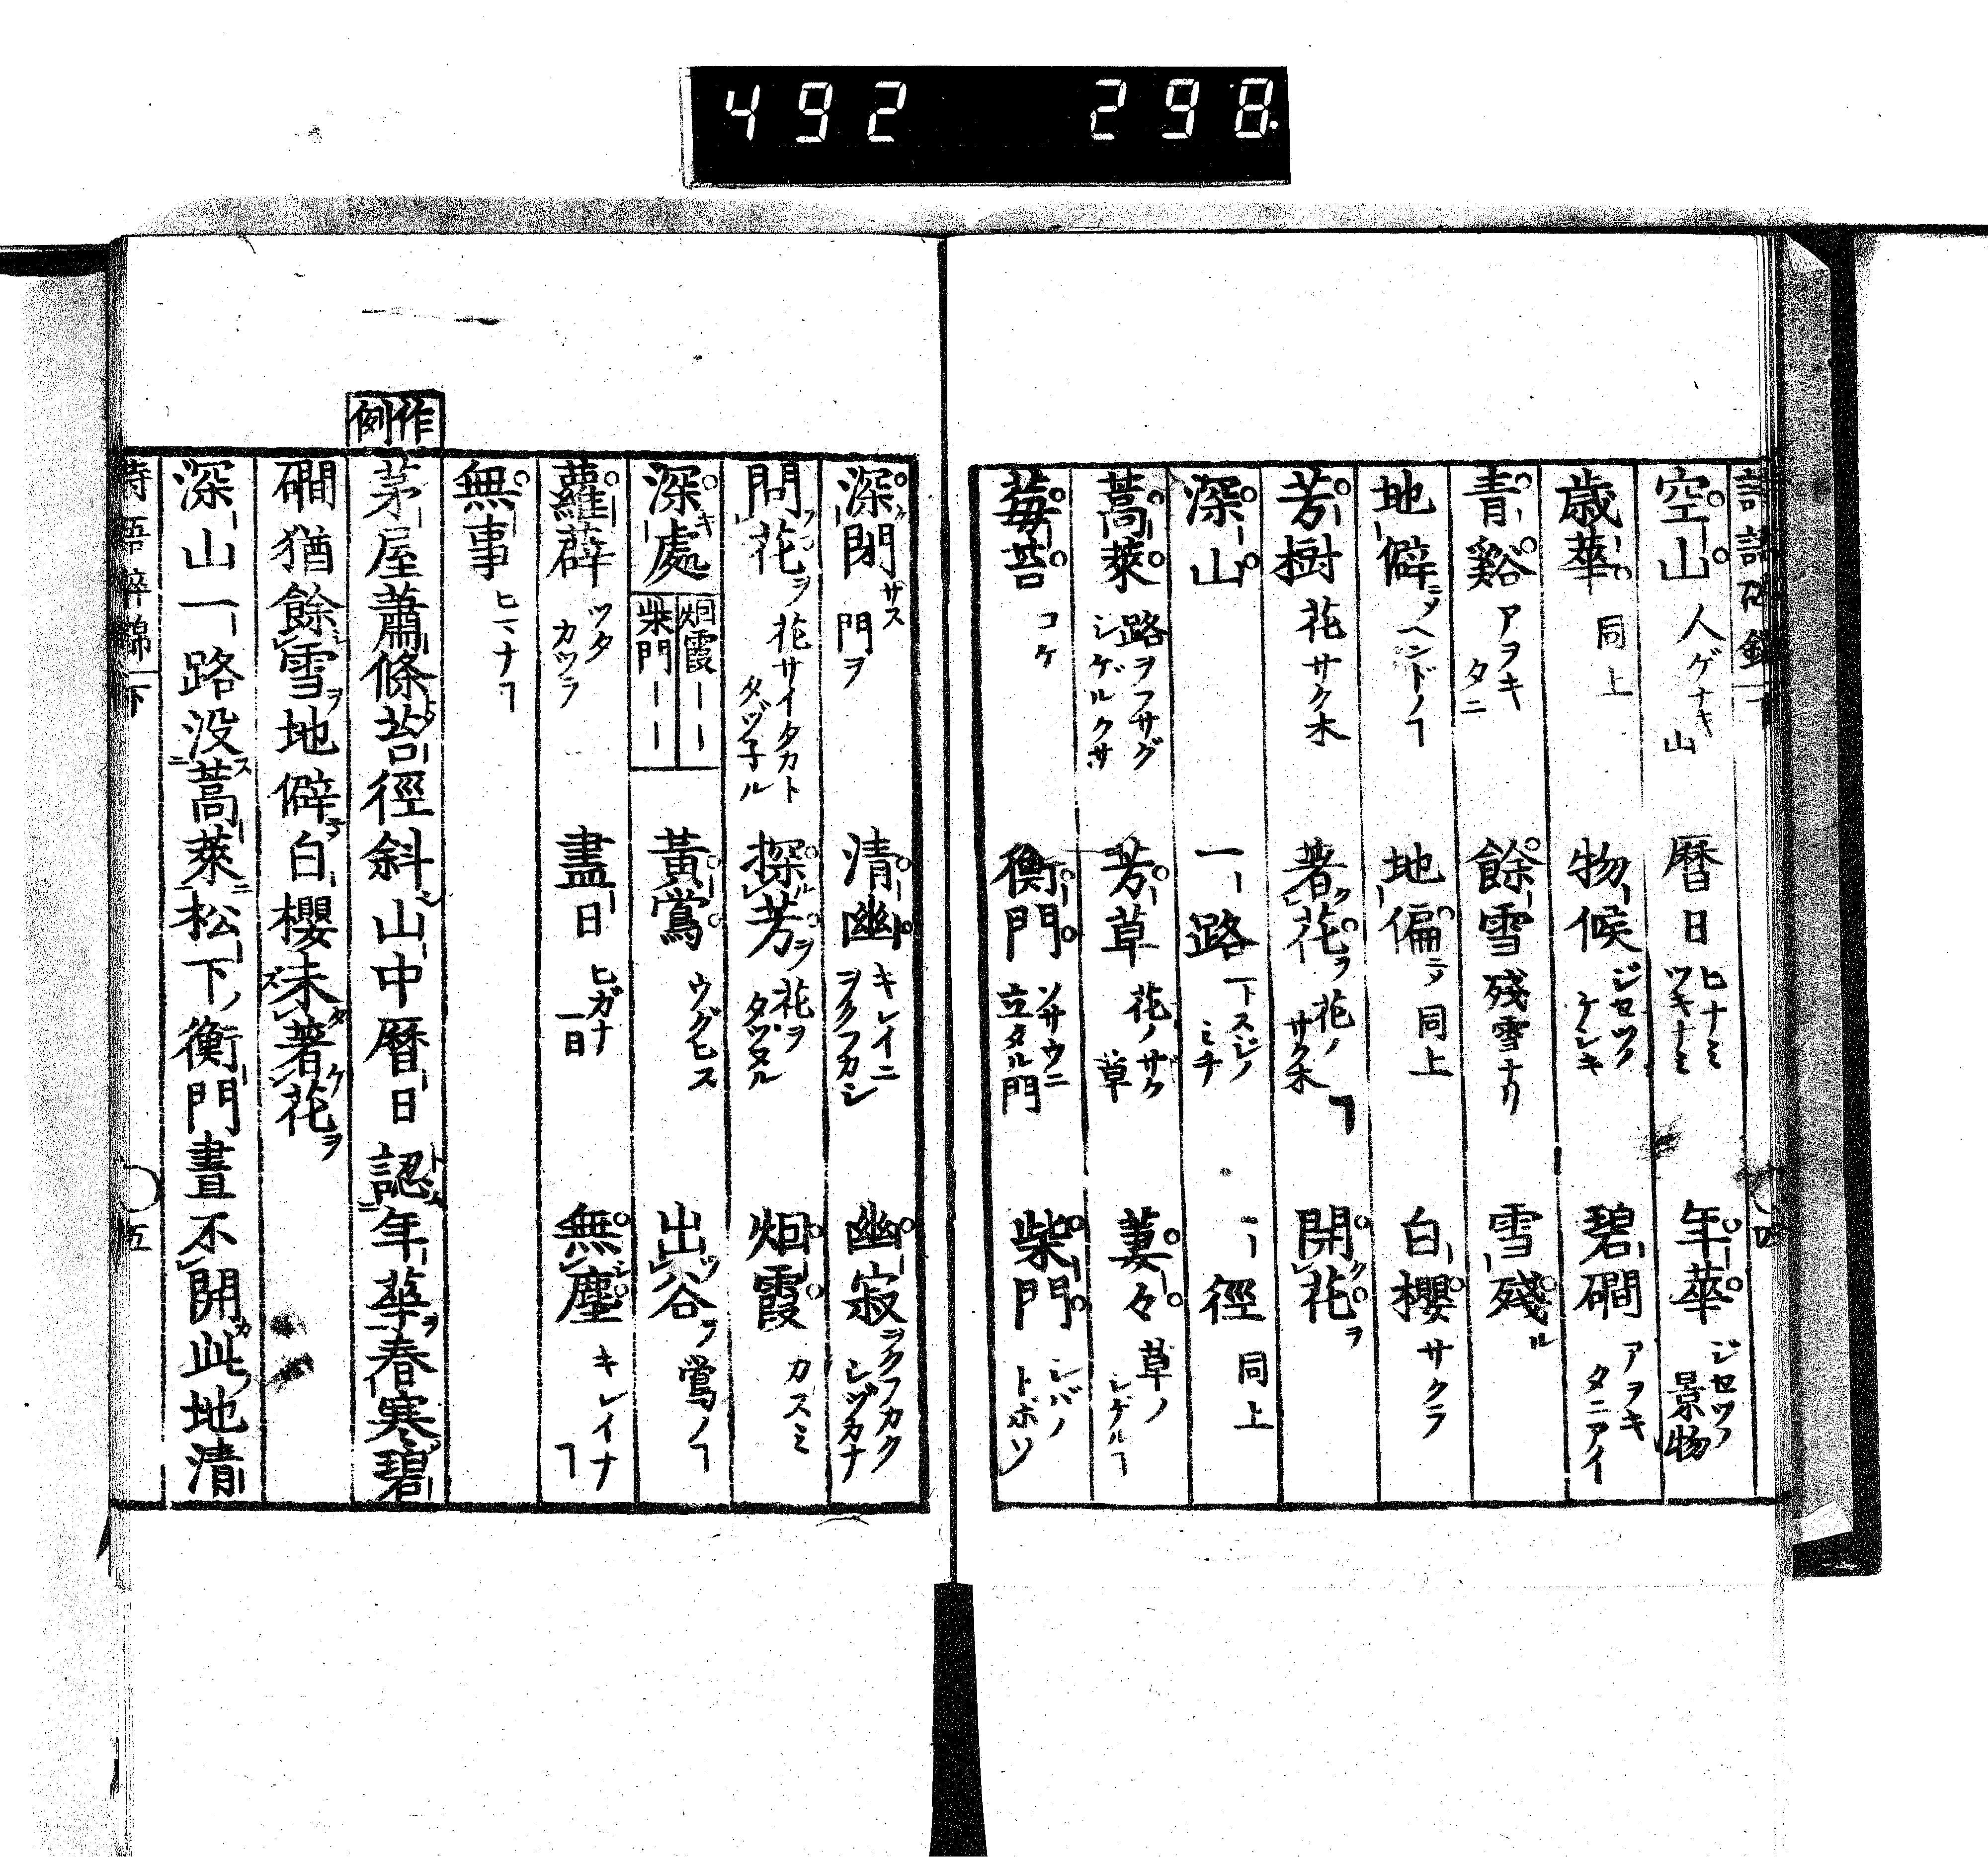 492 298
空山 人ゲナキ山 暦日 ヒナミツキナミ 年華 ジセツノ景物
歳華 同上 物候 ジセツノケシキ 碧磵 アヲキタニアイ
青谿 アヲキタニ 餘雪 殘雪ナリ 雪殘ル
地僻ニメ ヘンドノヿ 地偏ニメ 同上 白櫻 サクラ
芳樹 花サク木 著ク花ヲ 花ノサク木ノヿ 開ク花ヲ
深山 一路 一トスジノミチ 一徑 同上
蒿萊 路ヲフサグシゲルクサ 芳草 花ノサク草 萋々 草ノシゲルヿ
莓苔 コケ 衡門 ソサウニ立タル門 柴門 シバノトボソ
深ク閉サス門ヲ 清幽 キレイニヲクフカシ 幽寂 ヲクフカクシヅカナ
問フ花ヲ 花サイタカトタヅ子ル 探ル芳ヲ 花ヲタヅヌル 烟霞 カスミ
深キ處 烟霞ーー 柴門ーー 黃鶯 ウグヒス 出ツ谷ヲ 鶯ノヿ
蘿薜 ツタカツラ 盡日 ヒガナ一日 無塵 キレイナヿ
無事 ヒマナヿ
作例
茅屋蕭條苔徑斜山中暦日認年華ヲ春寒碧
磵猶餘雪ヲ地僻白櫻未著花ヲ
深山一路没蒿萊ニ松下ノ衡門晝不開此地清
詩語碎錦 下 五